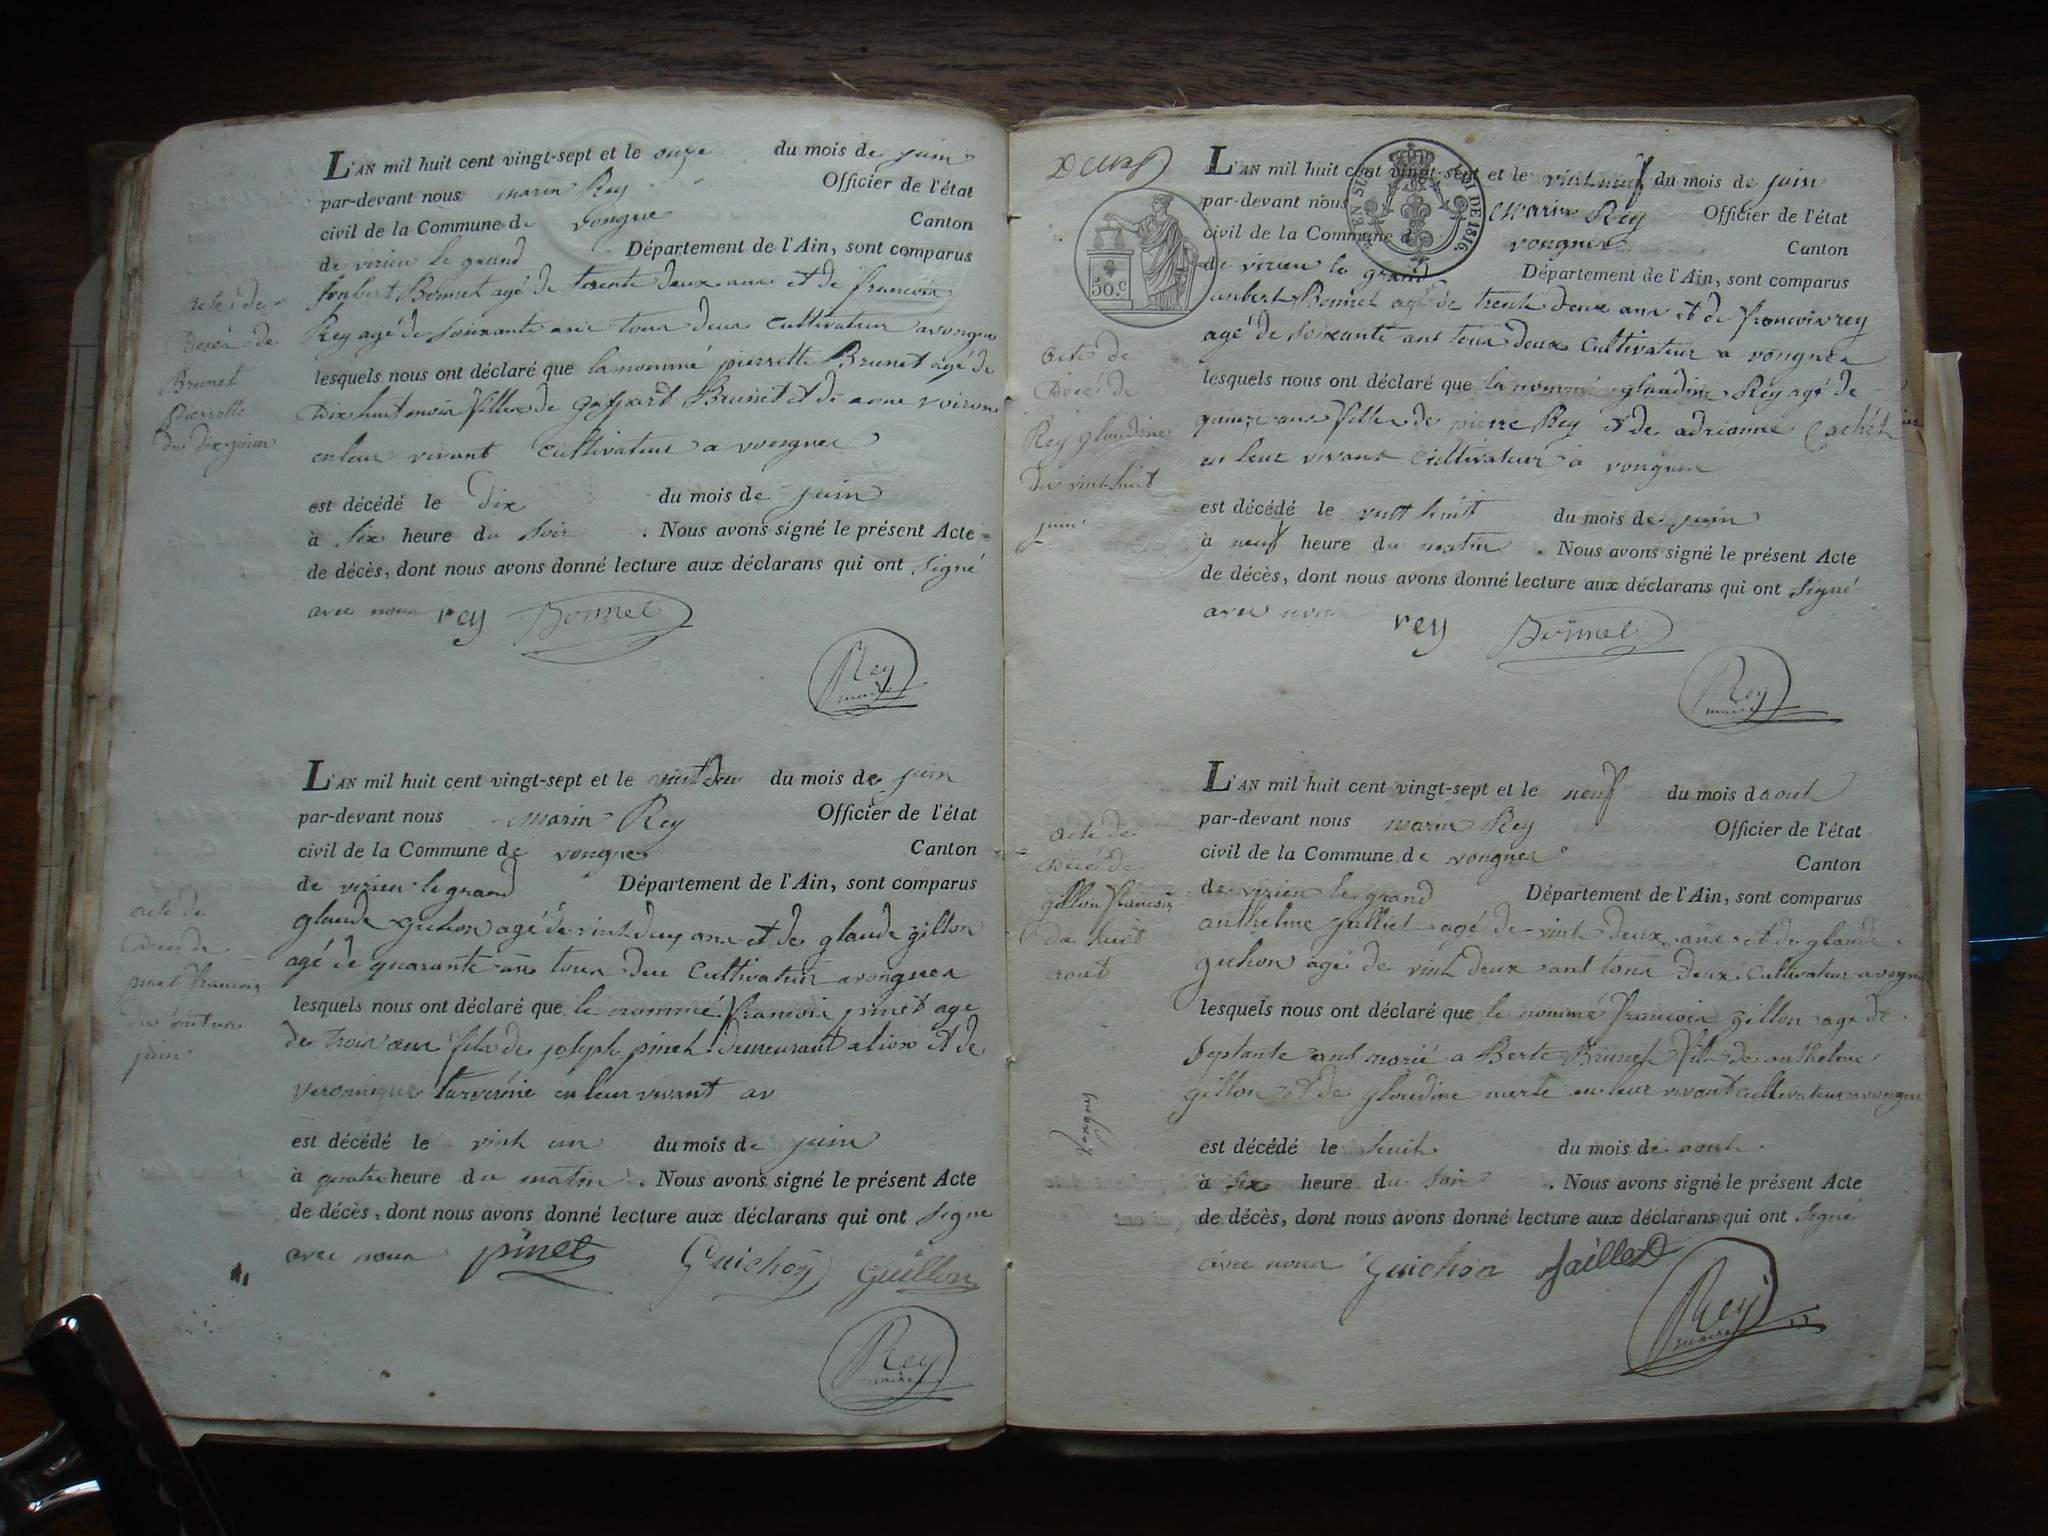 L'AN mil huit cent vingt-sept et le onze du mois de juin
par-devant nous marin Rey Officier de l'état
civil de la Commune de vongne Canton
de virieu le grand Département de l'Ain, sont comparus
acte de
Décé de
Brunet
pierrette
du dix juin
Bonnet agé de trente deux ans et de francois
Rey agé de soixante ans tous deux cultivateur a vongne
lesquels nous ont déclaré que la nommé pierrette Brunet agé de
Dix huit mois fille de gaspard Brunet et de anne voiron
en leur vivant cultivateur a vongne
est décédé le Dix du mois de juin
à six heure du soir . Nous avons signé le présent Acte
de décès, dont nous avons donné lecture aux déclarans qui ont signé
avec nous rey Bonnet
Rey
maire
L'AN mil huit cent vingt-sept et le vint deu du mois de juin
par-devant nous marin Rey Officier de l'état
civil de la Commune de vongnes Canton
de virieu le grand Département de l'Ain, sont comparus
acte de
Deces de
pinet francois
du vint un
juin
glaude guhon agé de vint deux ans et de glaude gillon
agé de quarante ans tous deu cultivateur a vongnes
lesquels nous ont déclaré que le nommé francois pinet age
de trois ans fils de joseph pinet demeurant a lion et de
veronique en leur vivant av
est décédé le vint un du mois de juin
à quatre heure du matin . Nous avons signé le présent Acte
de décès, dont nous avons donné lecture aux déclarans qui ont signe
avec nous pinet Guichon Guillon
Rey
maire
L'AN mil huit cent vingt-sept et le vint neuf du mois de juin
par-devant nous marin Rey Officier de l'état
civil de la Commune de vongnes Canton
de virieu le grand Département de l'Ain, sont comparus
EN SUS
DE 1816.
50.c
acte de
Décé de
Rey glaudine
du vint huit
juin
Bonnet agé de trente deux ans et de francois rey
agé de soixante ans tous deux cultivateur a vongnes
lesquels nous ont déclaré que la nommé glaudine Rey agé de
quinze ans fille de pierre Rey et de adrianne Cochet
en leur vivant cultivateur a vongnes
est décédé le vint huit du mois de juin
à neuf heure du matin . Nous avons signé le présent Acte
de décès, dont nous avons donné lecture aux déclarans qui ont signé
avec nous rey Bonnet
Rey
maire
L'AN mil huit cent vingt-sept et le neuf du mois d aout
par-devant nous marin Rey Officier de l'état
civil de la Commune de vongnes Canton
de virieu le grand Département de l'Ain, sont comparus
acte de
Décé de
gillon francois
du huit
aout
vongnes
anthelme jalliet agé de vint deux ans et de glaude
guhon agé de vint deux ans tous deux cultivateur a vongne
lesquels nous ont déclaré que le nommé francois gillon age de
septante ans marié a Berte Brunet fils de anthelme
gillon et de glaudine merle en leur vivant cultivateur a vongne
est décédé le huit du mois de aout
à six heure du soir . Nous avons signé le présent Acte
de décès, dont nous avons donné lecture aux déclarans qui ont signé
avec nous Guichon Jaillet
Rey
maire